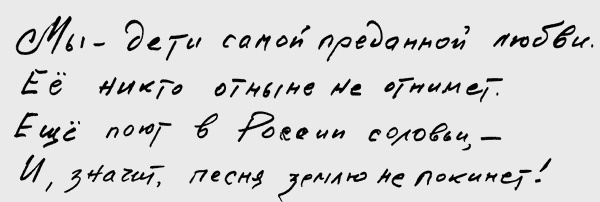 Мы - дети самой преданной любви.
Её никто отныне не отнимет.
Ещё поют в России соловьи, —
И, значит, песня землю не покинет!